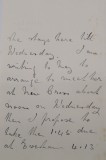 she stays here till
Wednesday. I am
writing to
arrange to meet her
at New
noon on Wednesday
then I propose to
take the 1.45 due
at Evesham 4.13